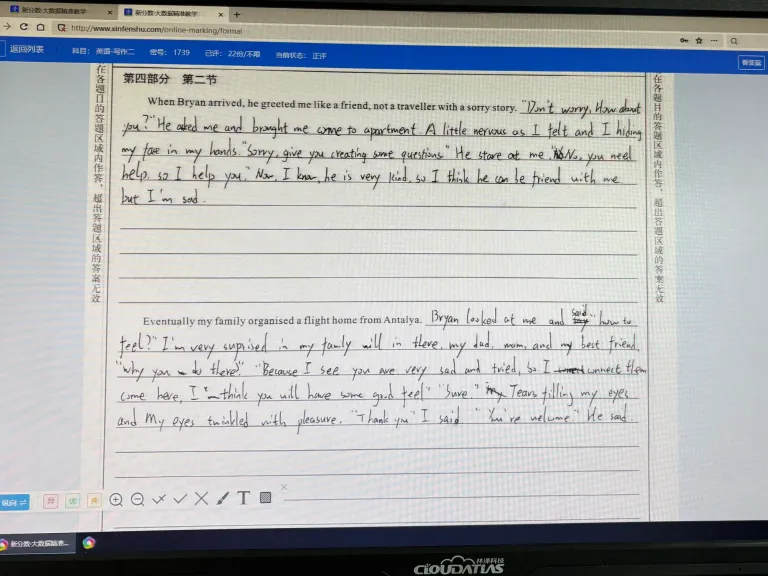 新分数·大数据精准教学
新分数·大数据精准教学
http://www.xinfenshu.com/online-marking/formal
返回列表 科目：英语-写作二 密号：1739 已评：22份/不限 当前状态：正评
第四部分 第二节
在各题目的答题区域内作答，超出答题区域的答案无效
When Bryan arrived, he greeted me like a friend, not a traveller with a sorry story. "Don't worry, How about
you?" He asked me and brought me come to apartment. A little nervous as I felt and I hiding
my face in my hands. "Sorry, give you creating some questions." He stare at me. "No, you need
help, so I help you." Now, I know, he is very kind, so I think he can be friend with me
but I'm sad.
在各题目的答题区域内作答，超出答题区域的答案无效
Eventually my family organised a flight home from Antalya. Bryan looked at me and said "how to
feel?" I'm very suprised in my family will in there, my dad, mom, and my best friend.
"why you do there?" "Because I see you are very sad and tried, so I connect them
come here, I think you will have some good feel" "Sure." Tears filling my eyes
and My eyes twinkled with pleasure. "Thank you" I said "You're welcome" He said.
纵向
T
新分数·大数据精准...
CLOUDATLAS